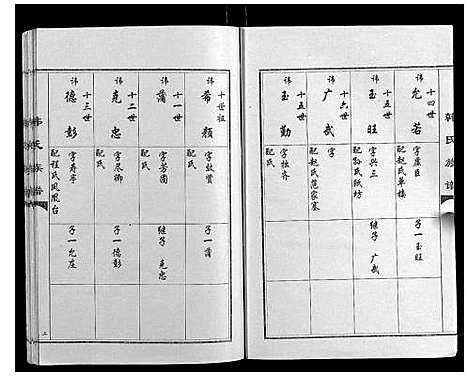 韩氏族谱
十四世
讳 允若
字虞臣
配赵氏草楼
子一玉旺
十五世
讳 玉旺
字兴三
配孙氏纸坊
继子 广武
十六世
讳 广武
字
配赵氏范家寨
十五世
讳 玉勤
字
配氏
十世祖
讳 希颜
字效贤
配氏
子一蒲
十一世
讳 蒲
字芳
配氏
继子 克忠
十二世
讳 克忠
字尽卿
配氏
子一德彭
十三世
讳 德彭
字寿亭
配程氏凤凰台
子一允庄